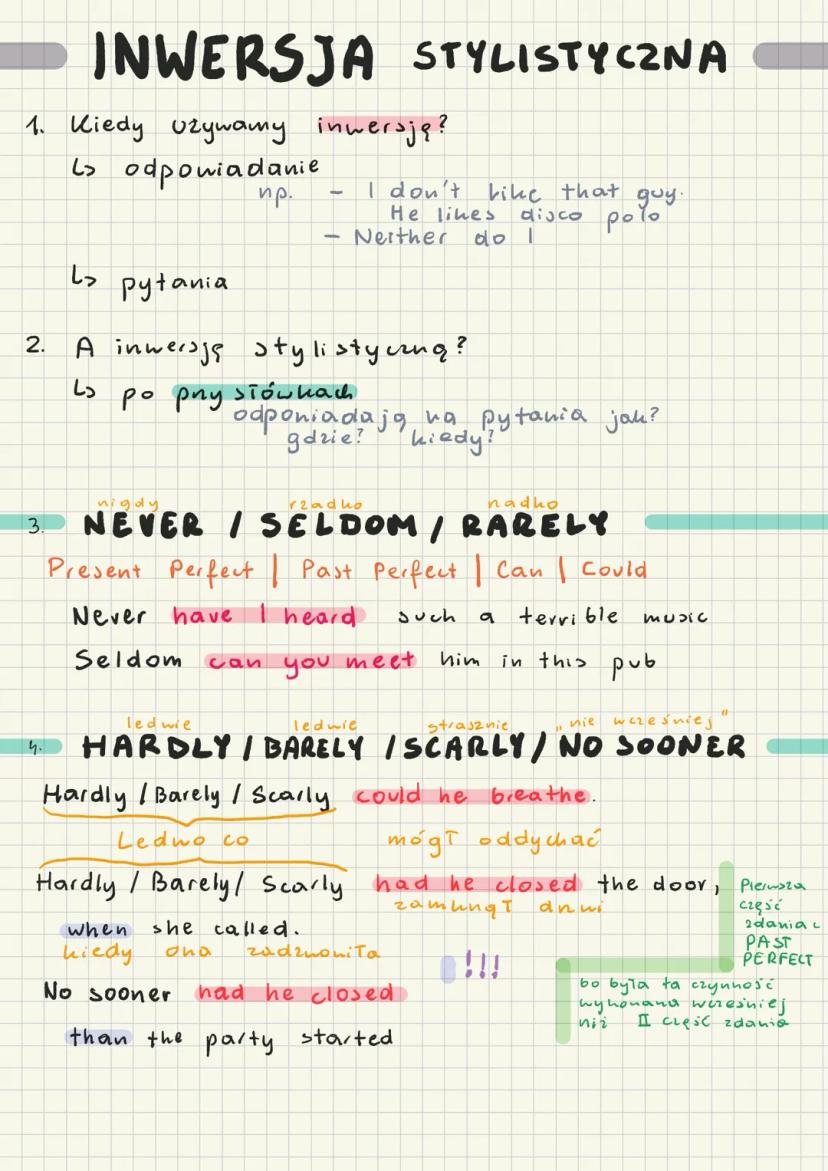 INWERSJA STYLISTYCZNA
1. Kiedy używamy inwersję?
↳ odpowiadanie
np. - I don't like that guy.
He likes disco polo
- Neither do I
↳ pytania
2. A inwersję stylistyczną?
↳ po przysłówkach
odpowiadają na pytania jak?
gdzie? kiedy?
nigdy rzadko rzadko
3. NEVER / SELDOM / RARELY
Present Perfect | Past Perfect | Can | Could
Never have I heard such a terrible music
Seldom can you meet him in this pub
ledwie ledwie strasznie „nie wcześniej"
4. HARDLY / BARELY / SCARLY / NO SOONER
Hardly / Barely / Scarly could he breathe.
Ledwo co mógł oddychać
Hardly / Barely / Scarly had he closed the door,
zamknął drzwi
when she called.
kiedy ona zadzwoniła
!!!
No sooner had he closed
than the party started
Pierwsza
część
zdania z
PAST
PERFECT
bo była ta czynność
wykonana wcześniej
niż II część zdania